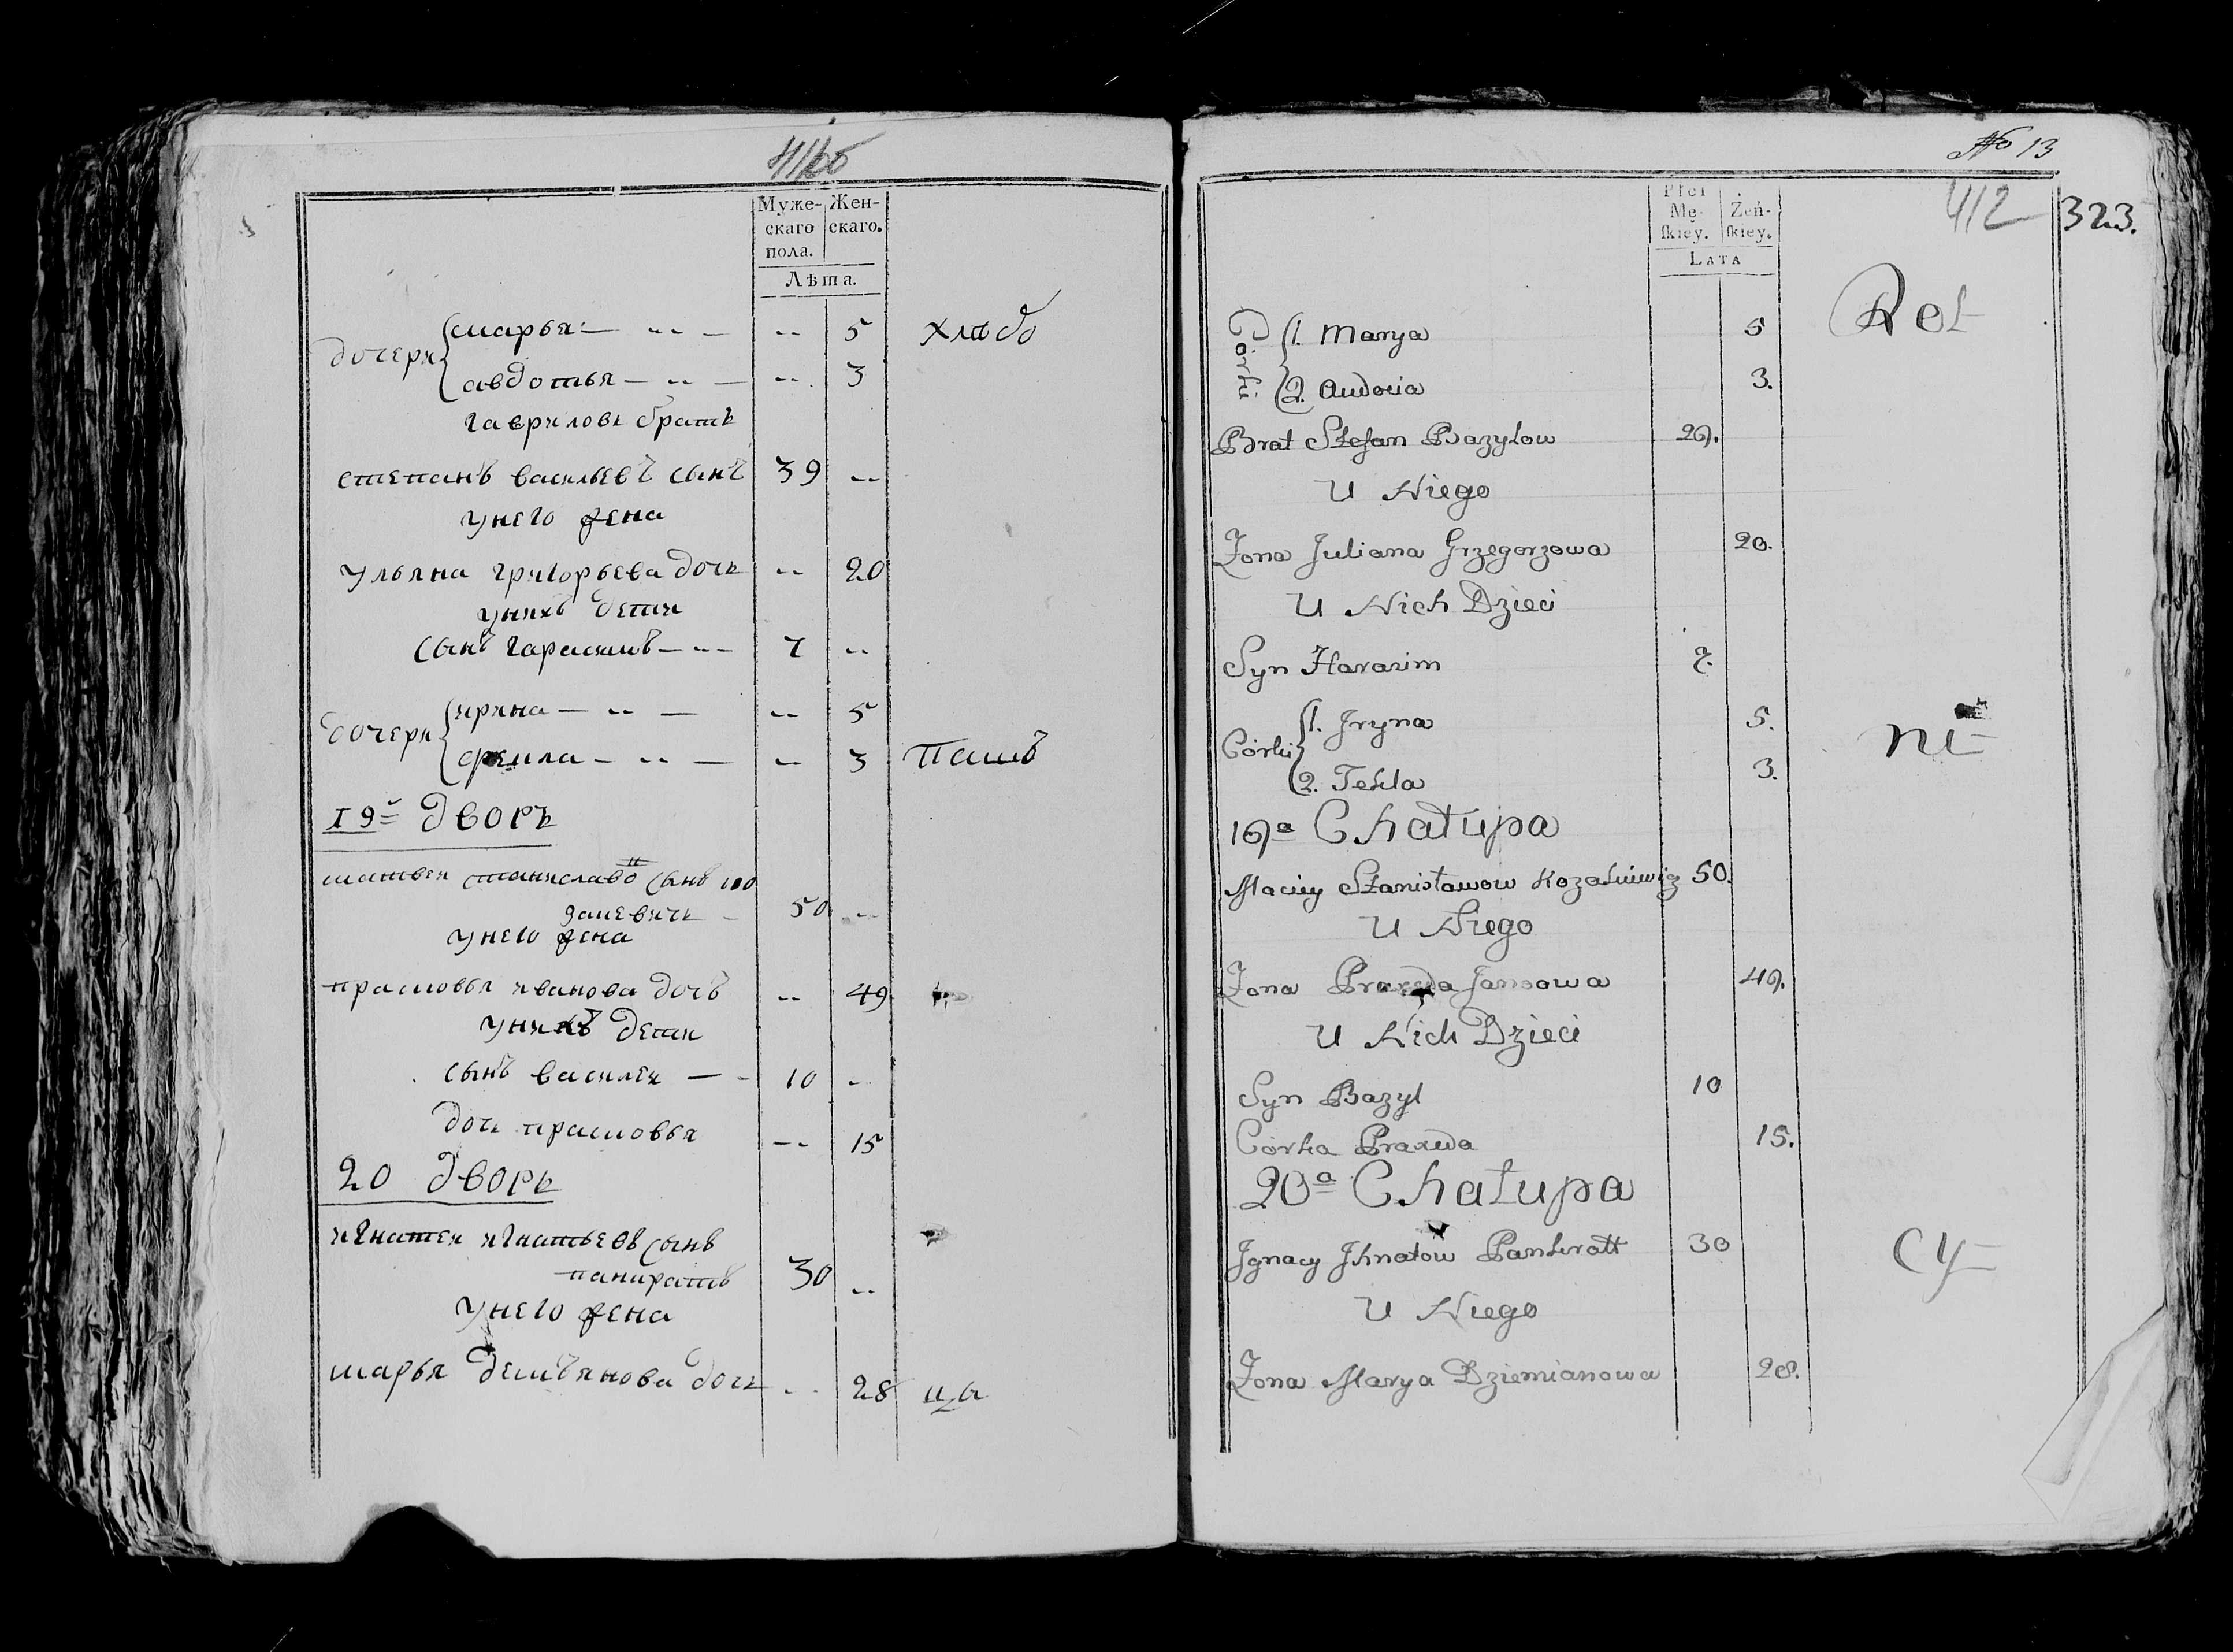 411об
Муже-
скаго
пола.
Жен-
скаго.
Лѣта.
дочери
марья — 5
хлѣбо
авдотья — 3
гавриловъ братъ
степанъ васильевъ сынъ 39
унего жена
ульяна григорьева дочь 20
унихъ дети
сынъ гарасимъ 7
дочери
ирина — 5
фекла — 3
пашъ
19й дворъ
матвеи станиславо сынъ ко
закевичь 50
унего жена
прасковья иванова дочь 49
унихъ дети
сынъ василеи — 10
дочь прасковья 15
20 дворъ
игнатеи игнатьевъ сынъ
панкратъ 30
унего жена
марья демьянова дочь 28
цы
No 13
412
323.
Płci
Mę-
skiey.
Żeń-
skiey.
LATA
Rol
Córki
1. Marya 5
2. Audocia 3.
Brat Stefan Bazylow 29.
U Niego
Zona Juliana Grzegorzowa 20.
U Nich Dzieci
Syn Harasim 7.
Córki
1. Jryna 5.
ni
2. Tekla 3.
19a Chałupa
Maciey Stanisławow Kozakiewicz 50.
U Niego
Zona Praxeda Janowa 49.
U Nich Dzieci
Syn Bazyl 10
Corka Praxeda 15.
20a Chałupa
Jgnacy Jhnatow Pankratt 30
cy
U Niego
Zona Marya Dziemianowa 28.